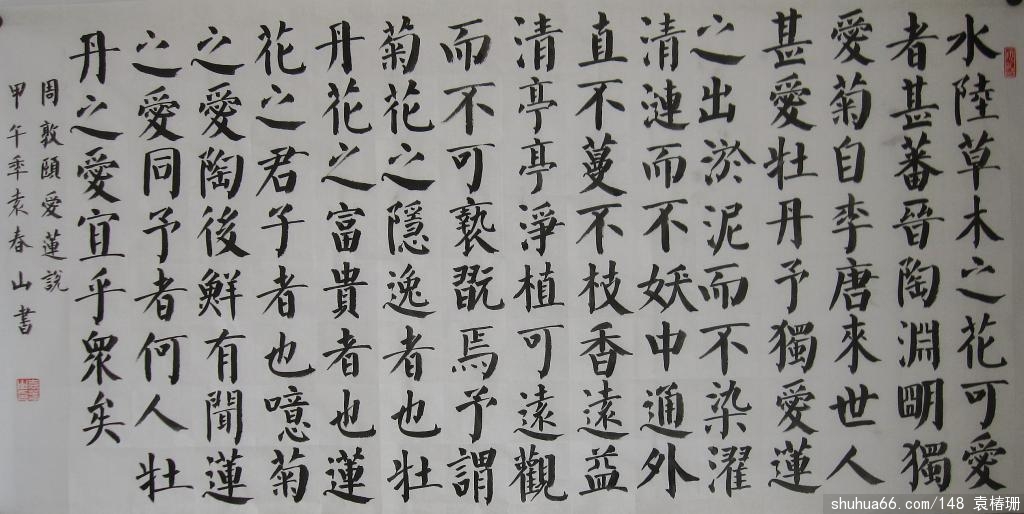 水陸草木之花可愛
者甚蕃晉陶淵明獨
愛菊自李唐來世人
甚愛牡丹予獨愛蓮
之出淤泥而不染濯
清漣而不妖中通外
直不蔓不枝香遠益
清亭亭淨植可遠觀
而不可褻翫焉予謂
菊花之隱逸者也牡
丹花之富貴者也蓮
花之君子者也噫菊
之愛陶後鮮有聞蓮
之愛同予者何人牡
丹之愛宜乎眾矣
周敦頤愛蓮說
甲午秊袁春山書
shuhua66.com/148 袁椿珊